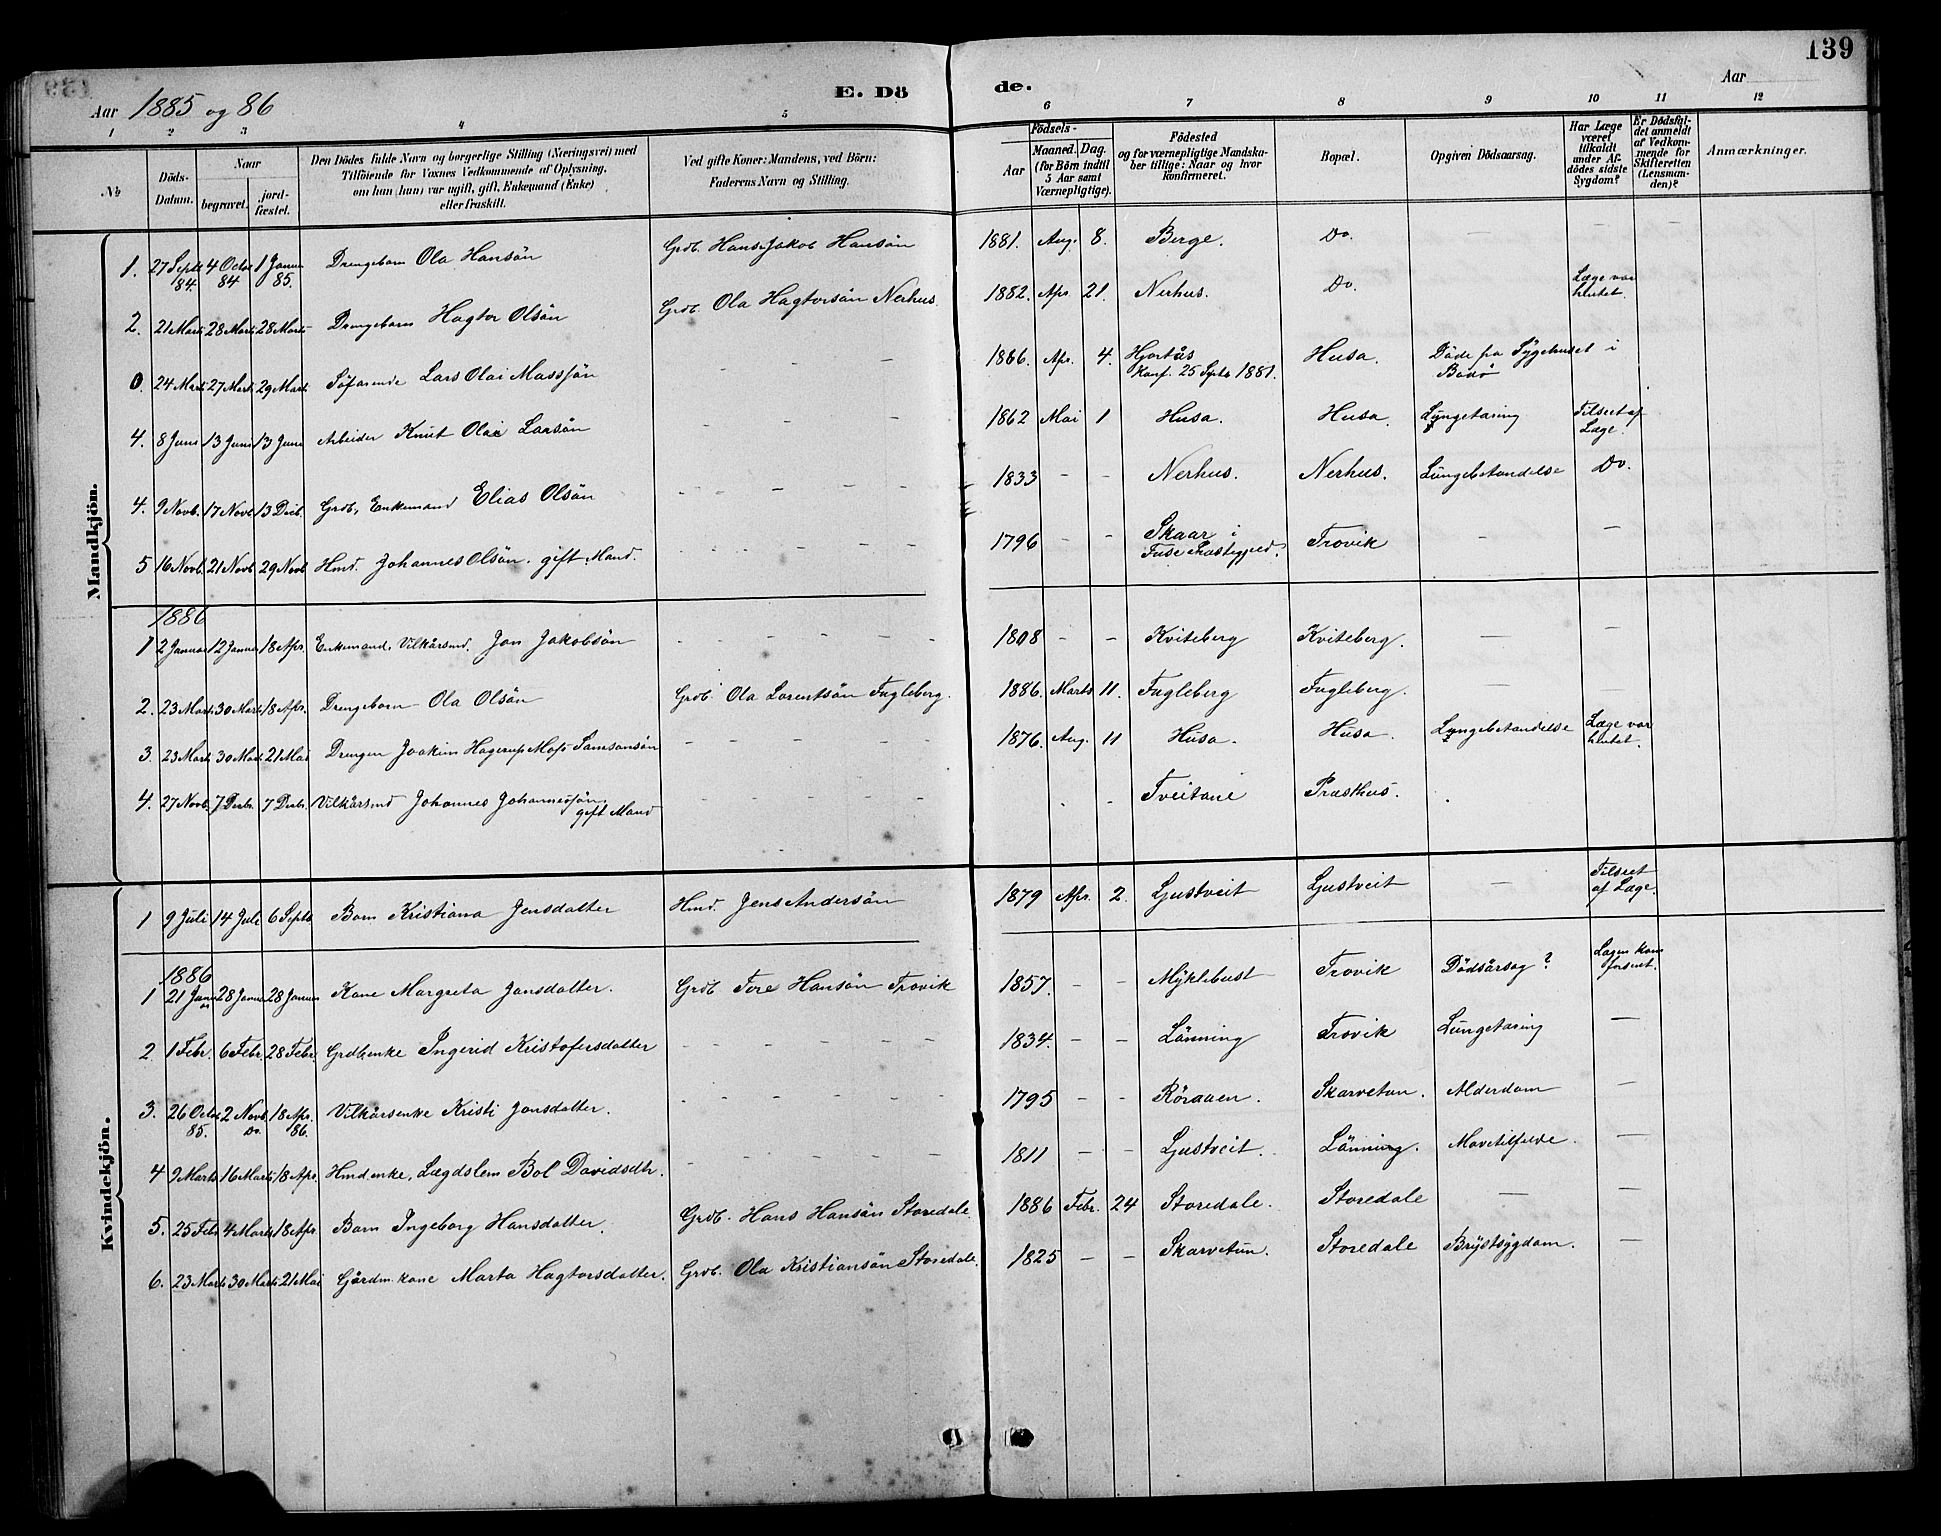 139
Aar 1885 og 86
E. Dö de.
Aar
1 2 3 4 5 6 7 8 9 10 11 12
№
Döds-Datum.
Naar
begravet.
jord-fæstet.
Den Dödes fulde Navn og borgerlige Stilling (Næringsvei) med
Tilföiende for Voxnes Vedkommende af Oplysning,
om han (hun) var ugift, gift, Enkemand (Enke)
eller fraskilt.
Ved gifte Koner: Mandens, ved Börn:
Faderens Navn og Stilling.
Födsels-
Aar
Maaned. Dag.
(for Börn indtil
5 Aar samt
Værnepligtige).
Födested
og for værnepligtige Mandska-
ber tillige: Naar og hvor
konfirmeret.
Bopæl.
Opgiven Dödsaarsag.
Har Læge
været
tilkaldt
under Af-
dödes sidste
Sygdom?
Er Dödsfal-
det anmeldt
af Vedkom-
mende for
Skifteretten
(Lensman-
den)?
Anmærkninger.
Mandkjön.
1. 27 Septr 84. 4 Octbr 84 1 Januar 85. Drengebarn Ola Hansön Grdb. Hans Jakob Hansön 1881. Aug. 8. Berge. Do. — —
2. 21 Marts 28 Marts 28 Marts Drengebarn Hagtor Olsön Grdb. Ola Hagtorsön Nerhus. 1882. Apr. 21. Nerhus. Do. Læge var hentet.
0. 24 Marts 27 Marts 29 Marts Söfarende Lars Olai Masssön - - - 1866 Apr. 4. Hjortås Konf. 25 Septb 1881. Husa. Döde pa Sygehuset i Bodö
4. 8 Juni 13 Juni 13 Juni Arbeider Knut Olai Larsön - - - 1862 Mai 1 Husa. Husa. Lungetæring Tilseet af Læge.
4. 9 Novb. 17 Novb 13 Decb. Grdb, Enkemand Elias Olsön - - - - - - 1833 - - Nerhus. Nerhus. Lungebetændelse Do.
5 16 Novb. 21 Novb 29 Novb Hmd. Johannes Olsön. gift Mand. - - - - - - 1796 - - Skaar i Fuse Præstegjeld. Trovik - —
1886
1 2 Januar 12 Januar 18 Apr. Enkemand, Vilkårsmd. Jon Jakobsön - - - - - - 1808 - - Kviteberg Kviteberg. — —
2. 23 Marts 30 Marts 18 Apr. Drengebarn Ola Olsön Grdb. Ola Lorentsön Fugleberg. 1886. Marts 11. Fugleberg Fugleberg. — —
3. 23 Marts 30 Marts 21 Mai Drengen Joakim Hagerup Moss Samsonsön - - - - - - 1876. Aug. 11 Husa. Husa. Lungebetændelse Læge var hentet.
4. 27 Novb. 7 Decbr. 7 Decbr. Vilkårsmd Johannes Johannessön. gift Mand - - - - - - . . Tveitane Præsthus. .
Kvindekjön.
1 9 Juli 14 Juli 6 Septb Barn Kristiana Jensdatter Hmd. Jens Andersön 1879 Apr. 2. Gjustveit Gjustveit — Tilseet af Læge.
1886
1 21 Januar 28 Januar 28 Januar Kone Margreta Jonsdatter. Grdb. Tore Hansön Trovik 1857. - - Myklebust Trovik Dödsårsag? Lægen kom forsent.
2. 1 Febr. 6 Febr. 28 Febr Grdbenke Ingerid Kristofersdatter - - - - - - 1834. - - Lönning Trovik Lungetæring —
3. 26 Octbr 85. 2 Novb. Do. 18 Apr. 86. Vilkårsenke Kristi Jonsdatter. - - - - - - 1795 - - Röraaen. Skarvetun. Alderdom —
4 9 Marts 16 Marts 18 Apr. Hmdenke, Lægdslem Bol Davidsdtr. - - - - - - 1811 - - Gjustveit. Lönning. Mavetilfelde. —
5. 25 Feb 4 Marts 18 Apr. Barn Ingeborg Hansdatter. Grdb. Hans Hansön Storedale. 1886 Febr. 24 Storedale. Storedale — —
6. 23 Marts 30 Marts 21 Mai Gårdm. kone Marta Hagtorsdatter. Grdb. Ola Kristiansön Storedale. 1825 - - Skarvetun. Storedale Brystsygdom. —